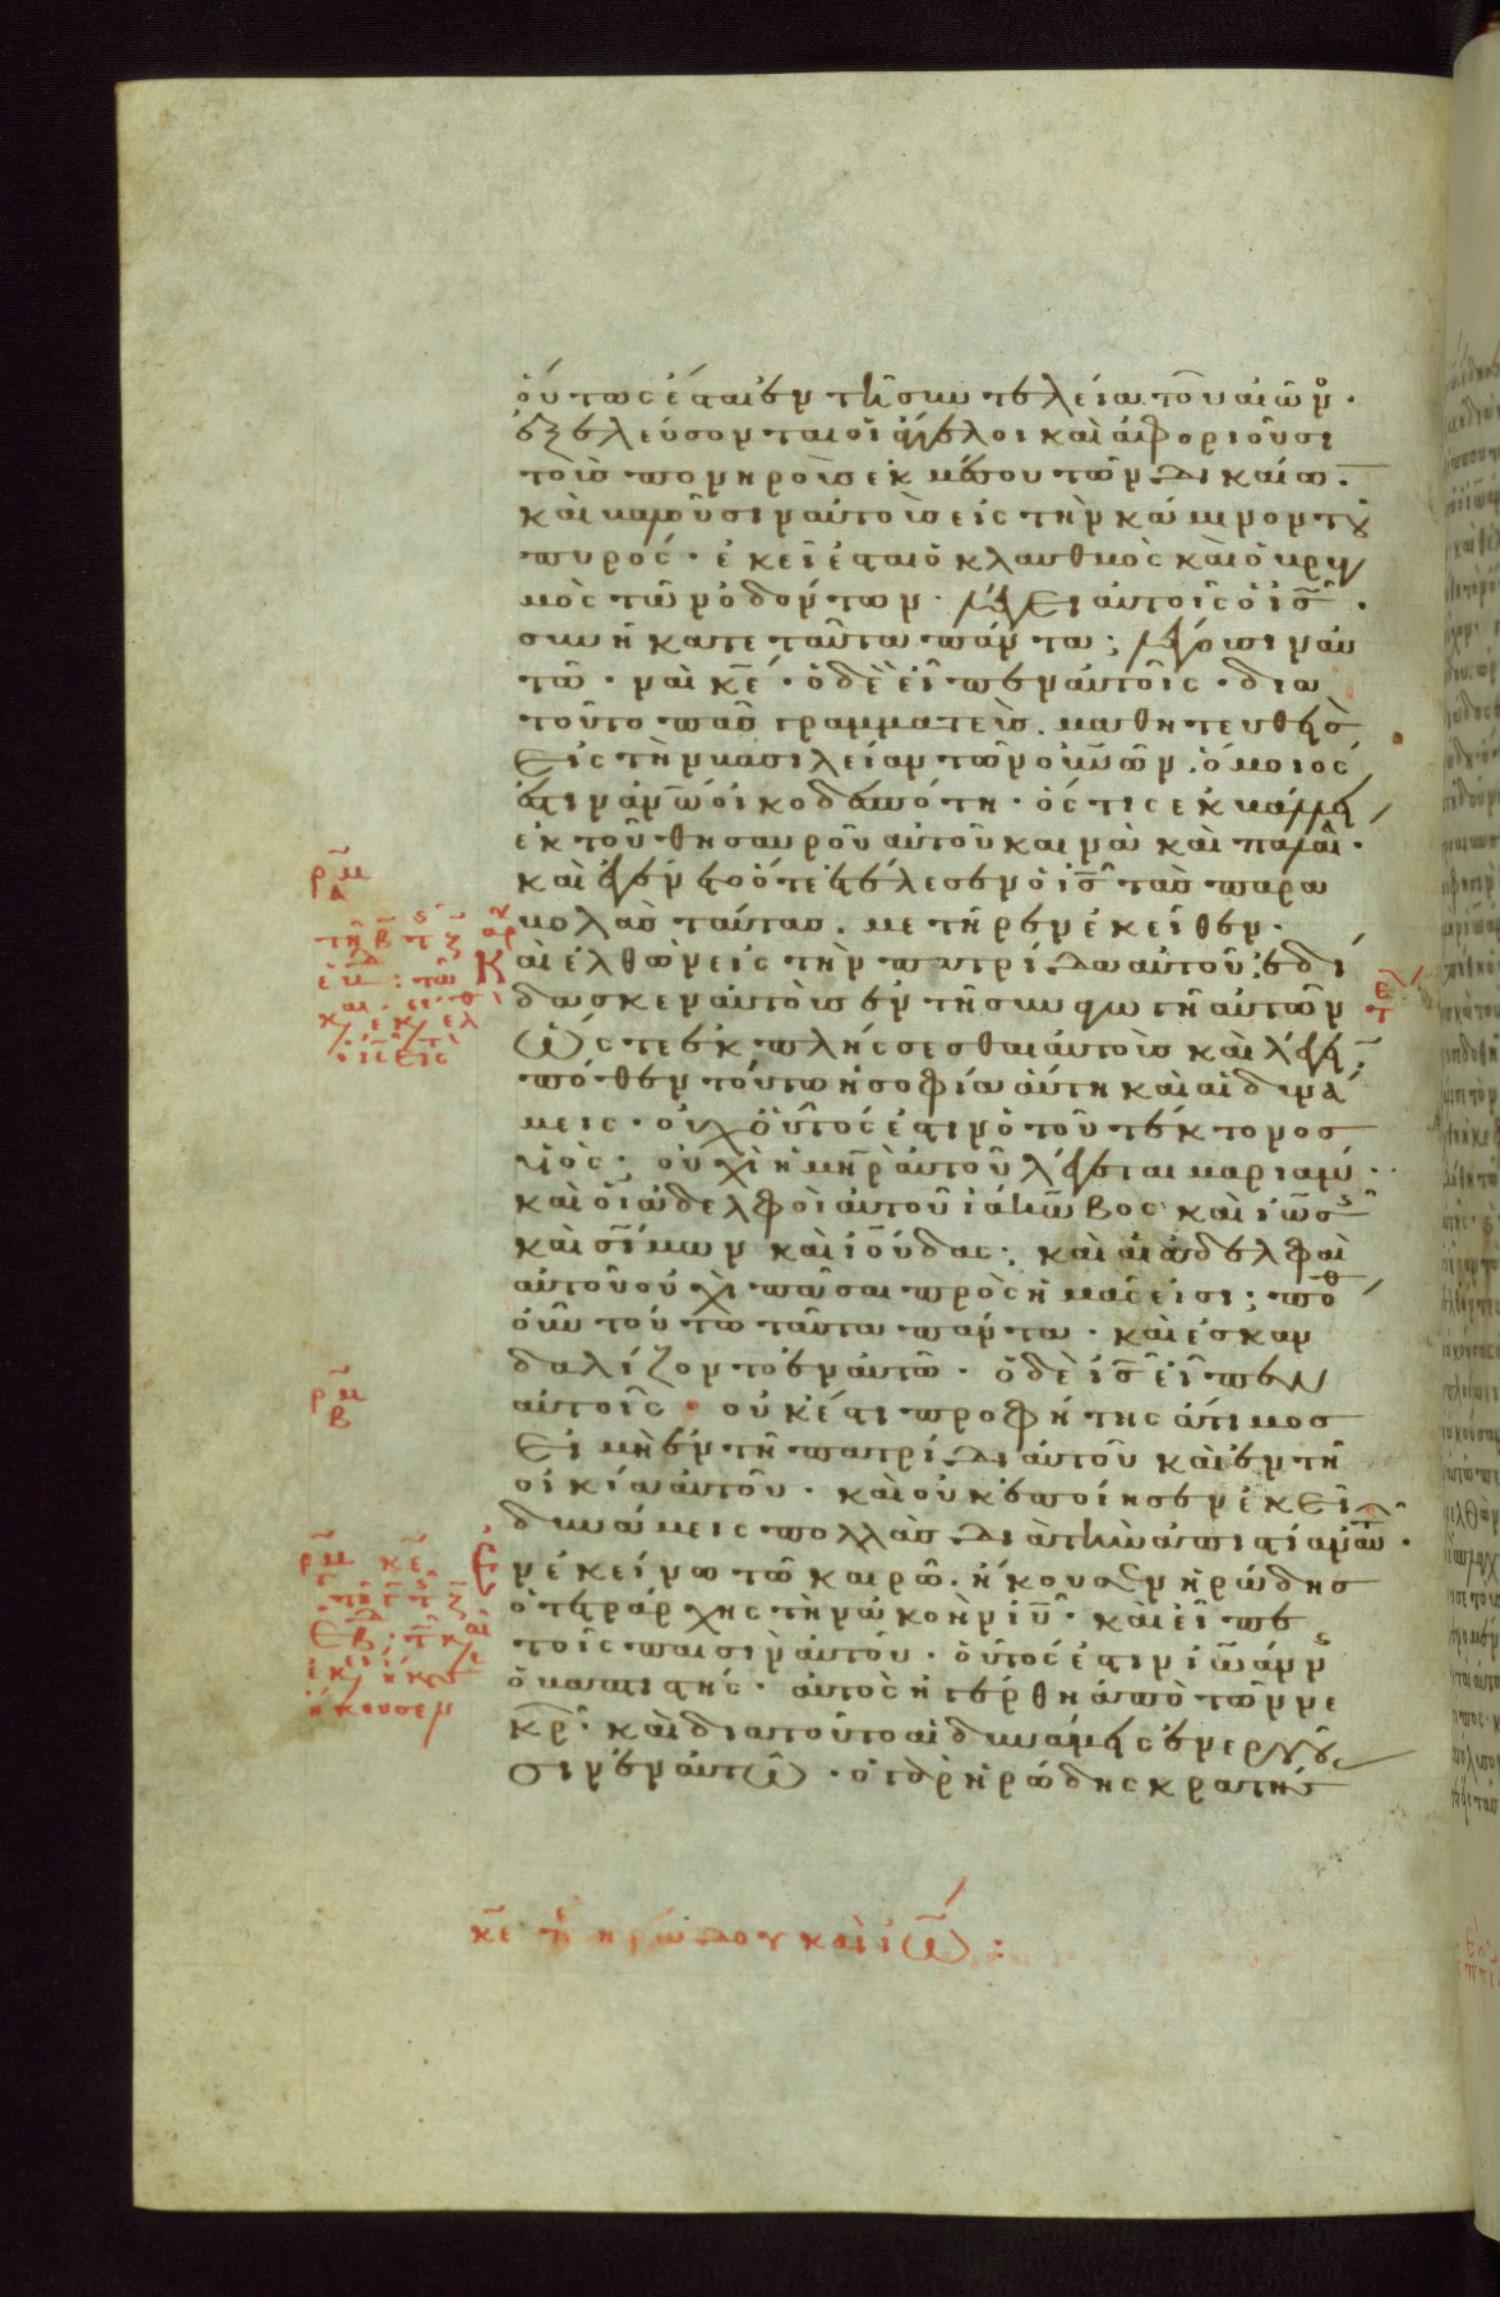 οὕτως ἔσται ἐν τῆ συντελεία τοῦ αἰῶνο
ἐξελεύσονται οἱ ἄγγελοι καὶ ἀφοριοῦσι
τοὺσ πονηροὺσ ἐκ μέσου τῶν δικαίω.
καὶ βαλοῦσιν αὐτοὺσ εἰς τὴν κάμινον τοῦ
πυρός· ἐκεῖ ἔσται ὁ κλαυθμὸς καὶ ὁ βρυγ
μὸς τῶν ὀδόντων· λέγει αὐτοῖς ὁ ἰς̅·
συνήκατε ταῦτα πάντα; λέγουσιν αὐ
τῶ· ναὶ κ̅ε· ὁ δὲ εἶπεν αὐτοῖς· δια
τοῦτο πᾶσ γραμματεὺσ. μαθητευθεὶσ
εἰς τὴν βασιλείαν τῶν οὐ̅νῶν. ὅμοιός
ἐστιν ἀν̅ω οἰκοδεσπότη· ὅστις ἐκβάλλει
ἐκ τοῦ θησαυροῦ αὐτοῦ καινὰ καὶ παλαι·
καὶ ἐγένετο ὅτε ἐτέλεσεν ὁ ἰς̅ τὰσ παρα
βολὰσ ταύτασ. μετῆρεν ἐκεῖθεν·
Καὶ ἐλθὼν εἰς τὴν πατρίδα αὐτοῦ. ἐδί
δασκεν αὐτοὺσ ἐν τῆ συναγωγῆ αὐτῶν
ὥστε ἐκπλήσσεσθαι αὐτοὺσ καὶ λέγειν·
πόθεν τούτω ἡ σοφία αὕτη καὶ αἱ δυνά
μεις· οὐχ οὗτός ἐστιν ὁ τοῦ τέκτονοσ
υἱὸς; οὐχὶ ἡ μη̅ρ αὐτοῦ λέγεται μαριάμ·
καὶ οἱ ἀδελφοὶ αὐτοῦ ἰάκωβος καὶ ἰωσ
καὶ σίμων καὶ ἰούδας; καὶ αἱ ἀδελφαὶ
αὐτοῦ οὐχὶ πᾶσαι πρὸς ἡμᾶς εἰσι; πόθ
οὖν τούτω ταῦτα πάντα· καὶ ἐσκαν
δαλίζοντο ἐν αὐτῶ· ὁ δὲ ἰς̅ εἶπεν
αὐτοῖς· οὐκ ἔστι προφήτης ἄτιμοσ
εἰ μὴ ἐν τῆ πατρίδι αὐτοῦ καὶ ἐν τῆ
οἰκία αὐτοῦ· καὶ οὐκ ἐποίησεν ἐκεῖ
δυνάμεις πολλὰσ διὰ τὴν ἀπιστίαν αὐτῶ·
Ἐν ἐκείνω τῶ καιρῶ. ἤκουσεν ἡρώδησ
ὁ τετράρχης τὴν ἀκοὴν ἰυ̅· καὶ εἶπε
τοῖς παισὶν αὐτοῦ· οὗτός ἐστιν ἰωάνν
ὁ βαπτιστής· αὐτὸς ἠγέρθη ἀπὸ τῶν νε
κρ· καὶ διατοῦτο αἱ δυνάμεις ἐνεργοῦ
σιν ἐν αὐτῶ· ὁ γὰρ ἡρώδης κρατήσ
ρμα
ρμβ
ρμγ κε
ἤκουσεν
κε π ἡρώδου καὶ ἰω: